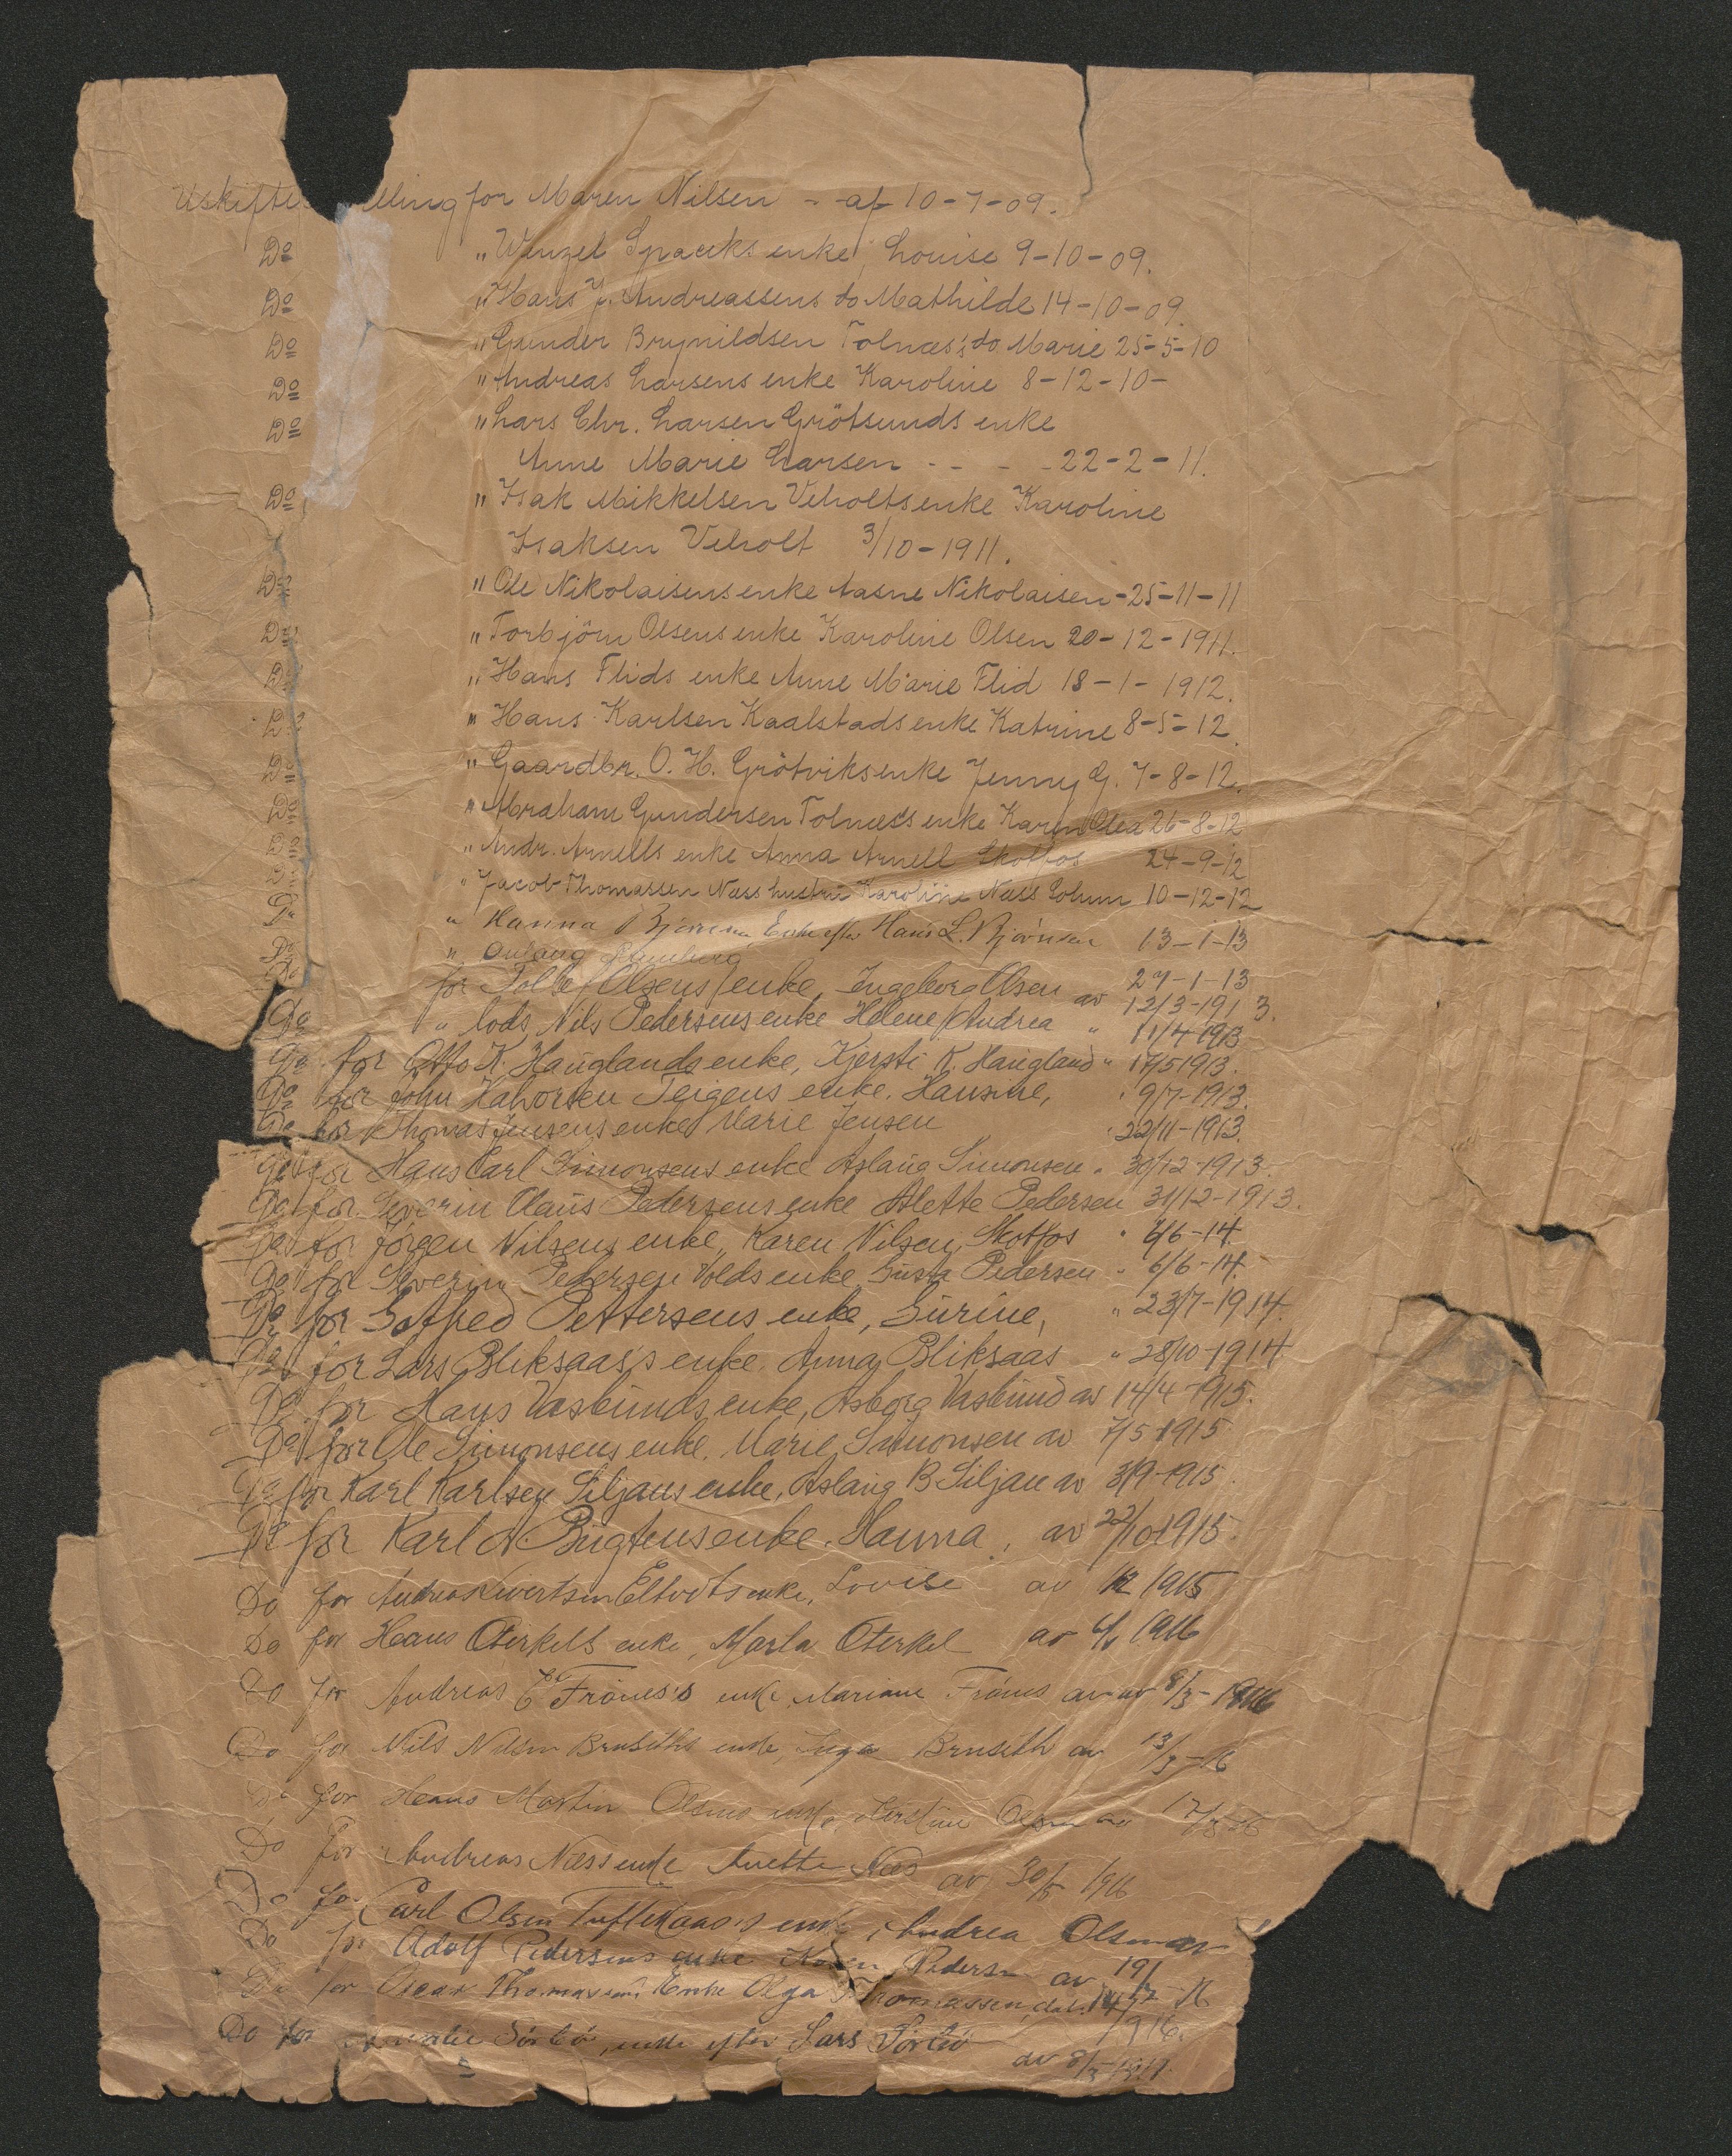 Uskifte lling for Maren Nilsen - af 10-7-09.
Do " Wenzel Spaeks enke Louise 9-10-09.
Do " Hans J. Andreassens do Mathilde 14-10-09.
Do " Gunder Brynildsen Tolnæs's do Marie 25-5-10
Do " Andreas Larsens enke Karoline 8-12-10-
Do " Lars Chr. Larsen Grötsunds enke
Anne Marie Larsen - - - 22-2-11.
Do " Isak Mikkelsen Veholts enke Karoline
Isaksen Veholt 3/10-1911.
Do " Ole Nikolaisens enke Aasne Nikolaisen - 25-11-11
Do " Torbjörn Olsens enke Karoline Olsen 20-12-1911.
Do " Hans Flids enke Anne Marie Flid 18-1-1912.
Do " Hans Karlsen Kaalstads enke Katrine 8-5-12.
Do " Gaardbr. O. H. Grötviks enke Jenny G. 7-8-12.
Do " Abraham Gundersen Tolnæs's enke Karen Olea 26-8-12
Do " Andr. Arnells enke Anna Arnell Skotfos 24-9-12
Do " Jacob Thomassen Næss hustru Karoline Næss Solum 10-12-12
Do " Hanna Björnsen, Enke efter Hans L. Björnsen 13-1-13
Do " Aulaug 27-1-13
Do for Olsens enke, Ingeborg Olsen av 12/3-1913.
Do " lods Nils Pedersens enke Helene Andrea " 11/4 1913
Do for Otto K. Hauglands enke, Kjersti K. Haugland " 17/5 1913.
Do for John Halvorsen Teigens enke. Hansine, " 9/7-1913.
Do for Thomas Jensens enke Marie Jensen " 22/11-1913.
Do for Hans Carl Simonsens enke Aslaug Simonsen " 30/12-1913.
Do for Severin Claus Pedersens enke Alette Pedersen 31/12-1913.
Do for Jörgen Nilsens enke, Karen Nilsen, Skotfos " 6/6-14.
Do for Severin Pedersen Volds enke Gusta Pedersen " 6/6-14.
Do for Gotfred Pettersens enke, Gurine, " 23/7-1914.
Do for Lars Bliksaas's enke. Anna Bliksaas " 28/10-1914
Do for Hans Vasbunds enke, Asborg Vasbund av 14/4-1915.
Do for Ole Simonsens enke. Marie Simonsen av 7/5 1915
Do for Karl Karlsen Siljans enke, Aslaug B Siljan av 3/9-1915.
Do for Karl A Bugtens enke. Hanna, av 22/10 1915.
Do for Andreas Sivertsen enke, Lovise av 1915
Do for Hans Oterkels enke, Marta Oterkel av 1916
Do for Andreas E Frönes's enke Mariane Frönes av av 8/3-1916
Do for Nils Nilsen Bruseths enke, Inga Bruseth av 13/3-16
Do for Hans Martin Olsens enke, Kirstine Olsen av 17/
Do for Andreas Næss enke Anette Næs av 30/5 1916
Do for Carl Olsen enke, Andrea Olsen av
Do for Adolf Pedersens enke Karen Pedersen av 19/ 16
Do for Oscar Thomassens Enke Olga Thomassen, dat. 1916.
Do for Sörbö, enke efter Lars Sörbö
av 8/3